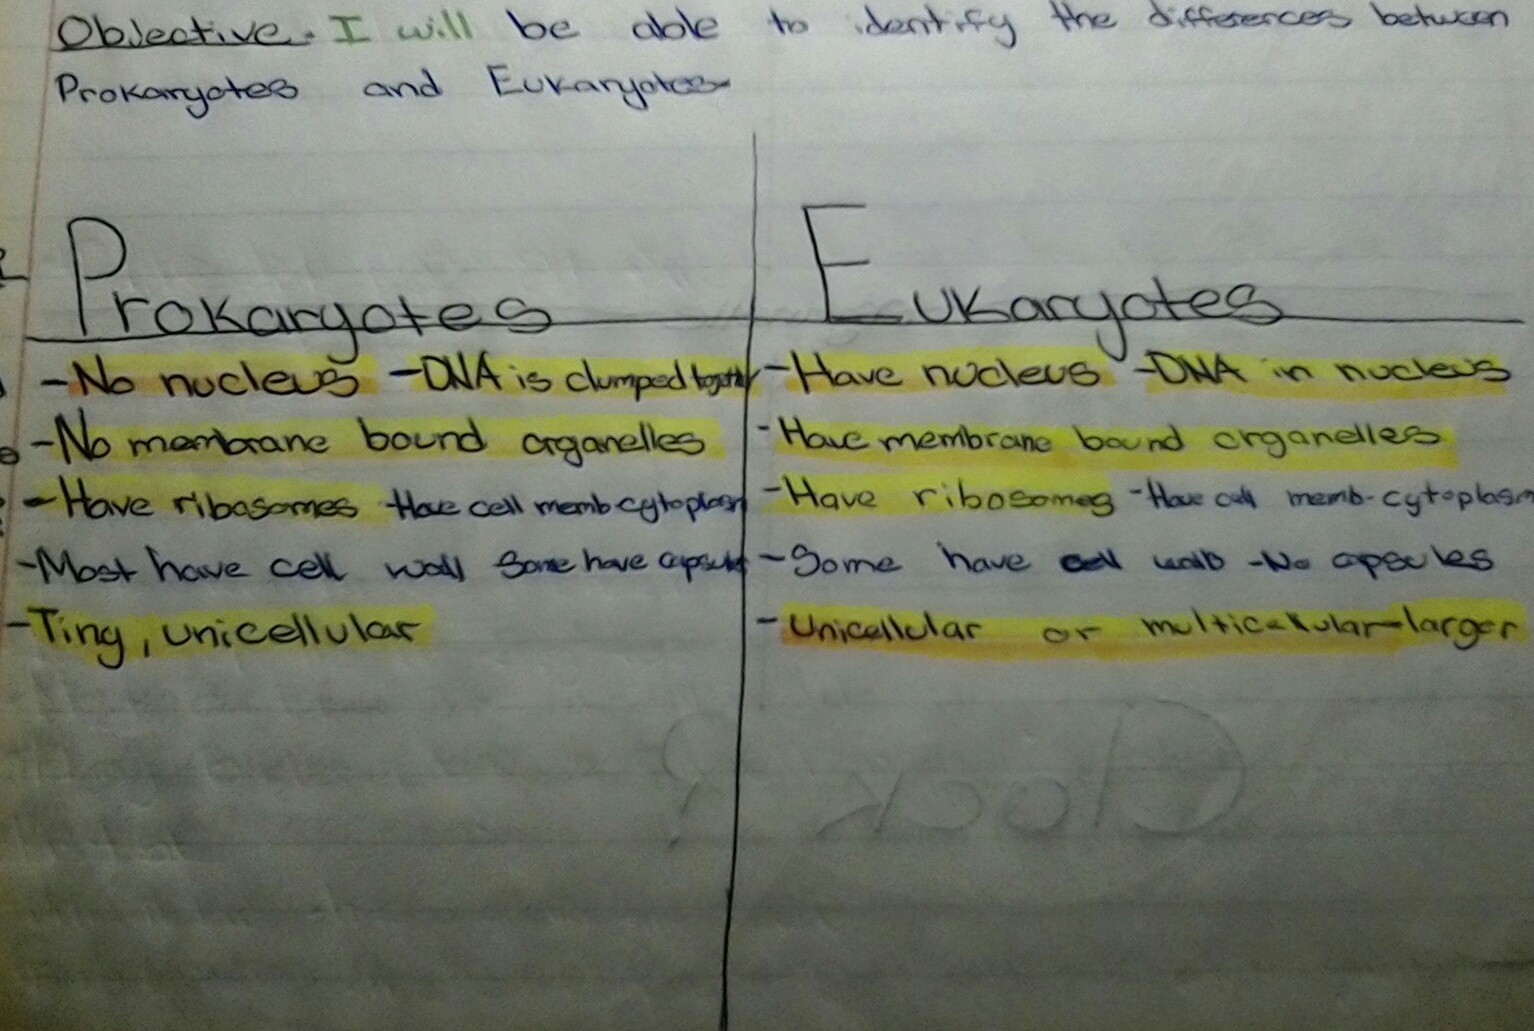 Objective. I will be able to identify the differences between
Prokaryotes and Eukaryotes
Prokaryotes
-No nucleus -DNA is clumped together
-No membrane bound organelles
-Have ribosomes -Have cell memb-cytoplasm
-Most have cell wall Some have capsules
-Tiny, unicellular
Eukaryotes
-Have nucleus -DNA in nucleus
-Have membrane bound organelles
-Have ribosomes -Have cell memb-cytoplasm
-Some have cell walls -No capsules
-Unicellular or multicellular-larger